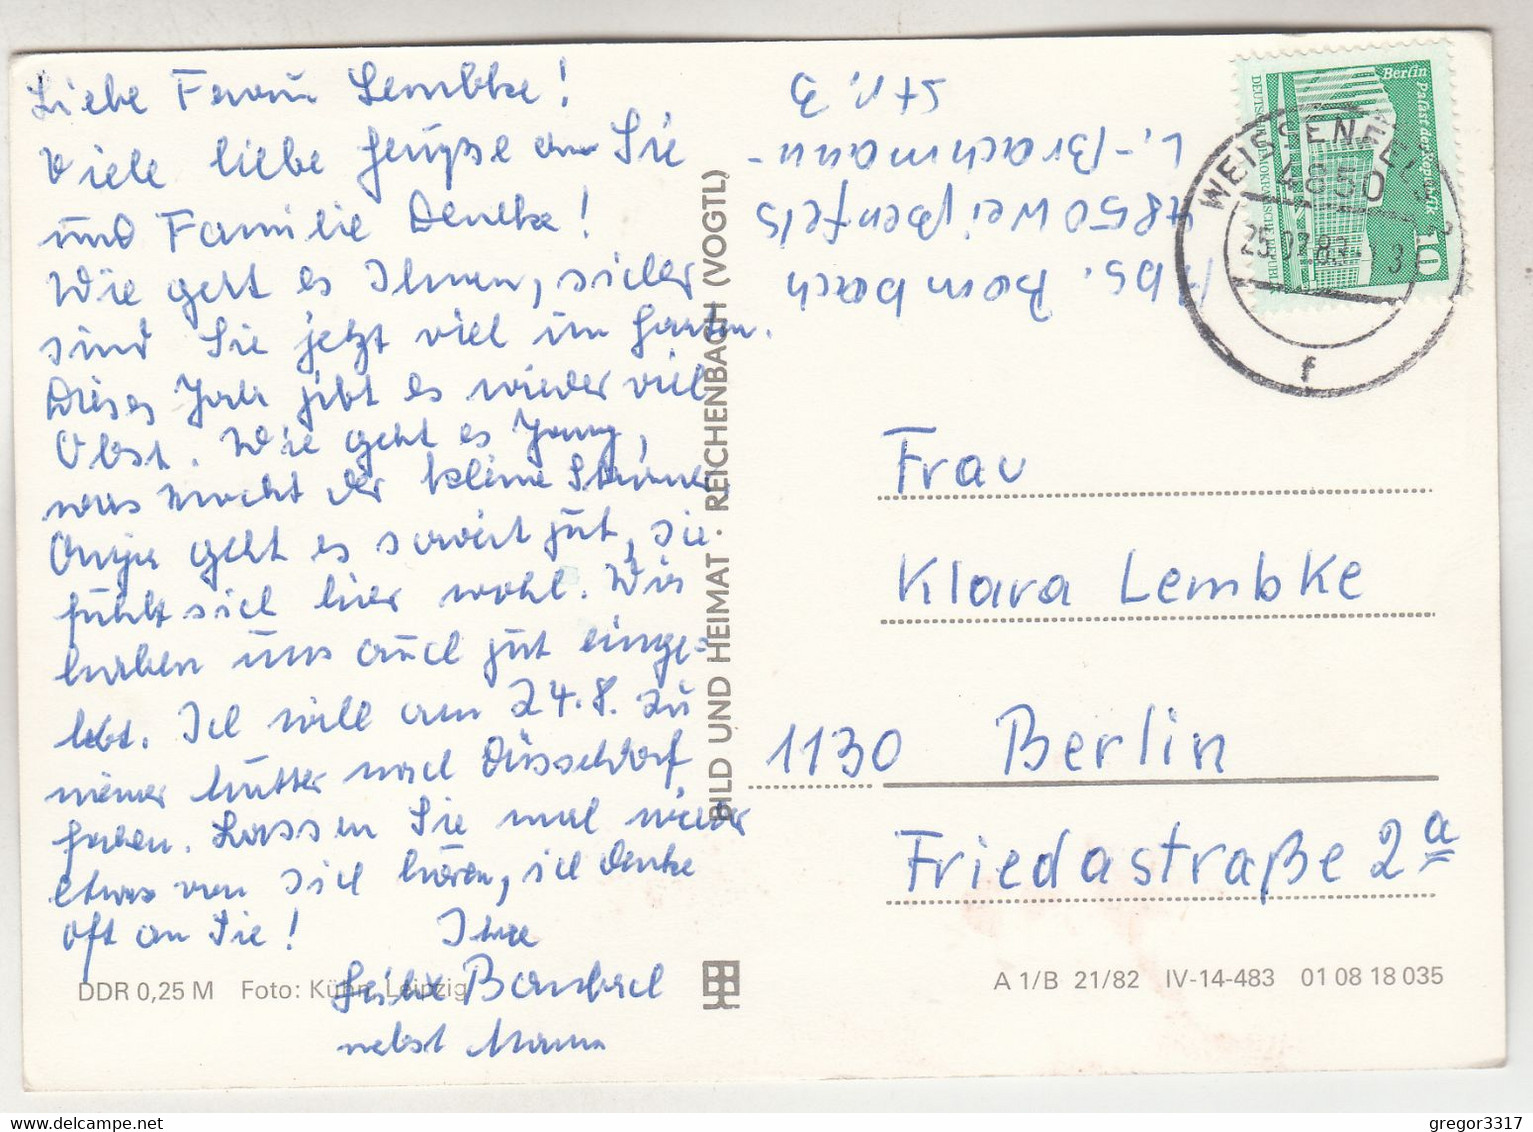 Liebe Frau Lembke!
Viele liebe Grüße an Sie
und Familie
Wie geht es Ihnen, sicher
sind Sie jetzt viel im Garten.
Dieses Jahr gibt es wieder viel
Obst. Wie geht es
was macht der kleine
geht es soweit gut, sie
fühlt sich hier wohl. Wir
haben uns auch gut einge-
lebt. Ich will am 24.8. zu
meiner Mutter nach Düsseldorf
fahren. Lassen Sie mal wieder
etwas von sich hören, ich denke
oft an Sie!
Ihre
Bombach
nebst Mann
DDR 0,25 M Foto: Kühn, Leipzig
BILD UND HEIMAT · REICHENBACH (VOGTL)
Abs. Bombach
4850 Weißenfels
L.-Brachmann-
Str. 3
Berlin Palast der Republik
10
WEISSENFELS
4850
25.07.83
f
Frau
Klara Lembke
1130 Berlin
Friedastraße 2a
A 1/B 21/82 IV-14-483 01 08 18 035
gregor3317